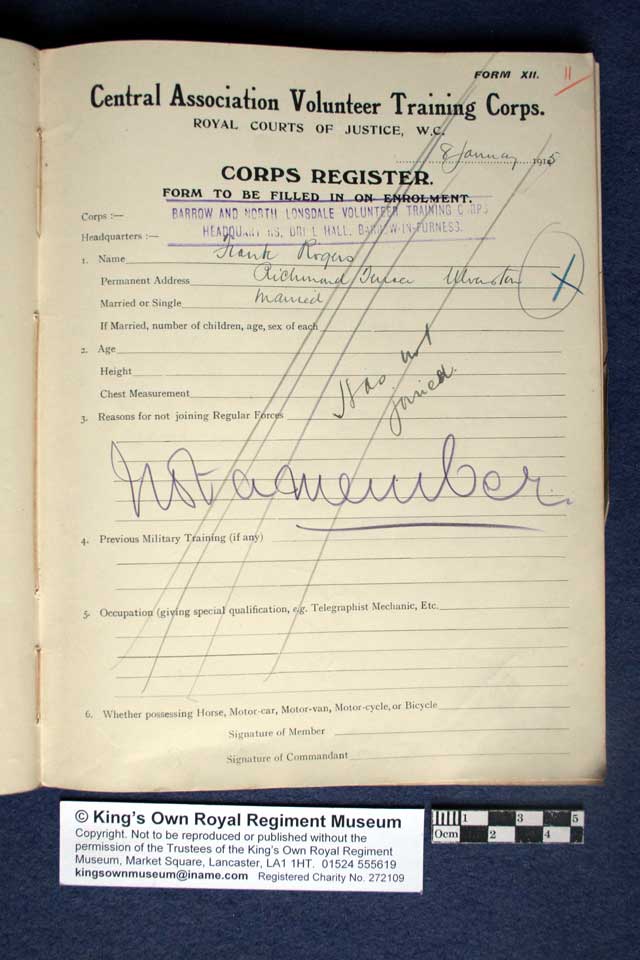 FORM XII.
11
Central Association Volunteer Training Corps.
ROYAL COURTS OF JUSTICE, W.C.
8 January 1915
CORPS REGISTER.
FORM TO BE FILLED IN ON ENROLMENT.
Corps :— BARROW AND NORTH LONSDALE VOLUNTEER TRAINING CORPS
Headquarters :— HEADQUARTERS, DRILL HALL, BARROW-IN-FURNESS.
1. Name Frank Rogers
Permanent Address Richmond Terrace Ulverston
X
Married or Single Married
If Married, number of children, age, sex of each
2. Age
Height
Chest Measurement
Has not
joined.
3. Reasons for not joining Regular Forces
Not a member.
4. Previous Military Training (if any)
5. Occupation (giving special qualification, e.g. Telegraphist Mechanic, Etc.
6. Whether possessing Horse, Motor-car, Motor-van, Motor-cycle, or Bicycle
Signature of Member
Signature of Commandant
© King's Own Royal Regiment Museum
Copyright. Not to be reproduced or published without the
permission of the Trustees of the King's Own Royal Regiment
Museum, Market Square, Lancaster, LA1 1HT. 01524 555619
kingsownmuseum@iname.com Registered Charity No. 272109
1 3 5
0cm 2 4